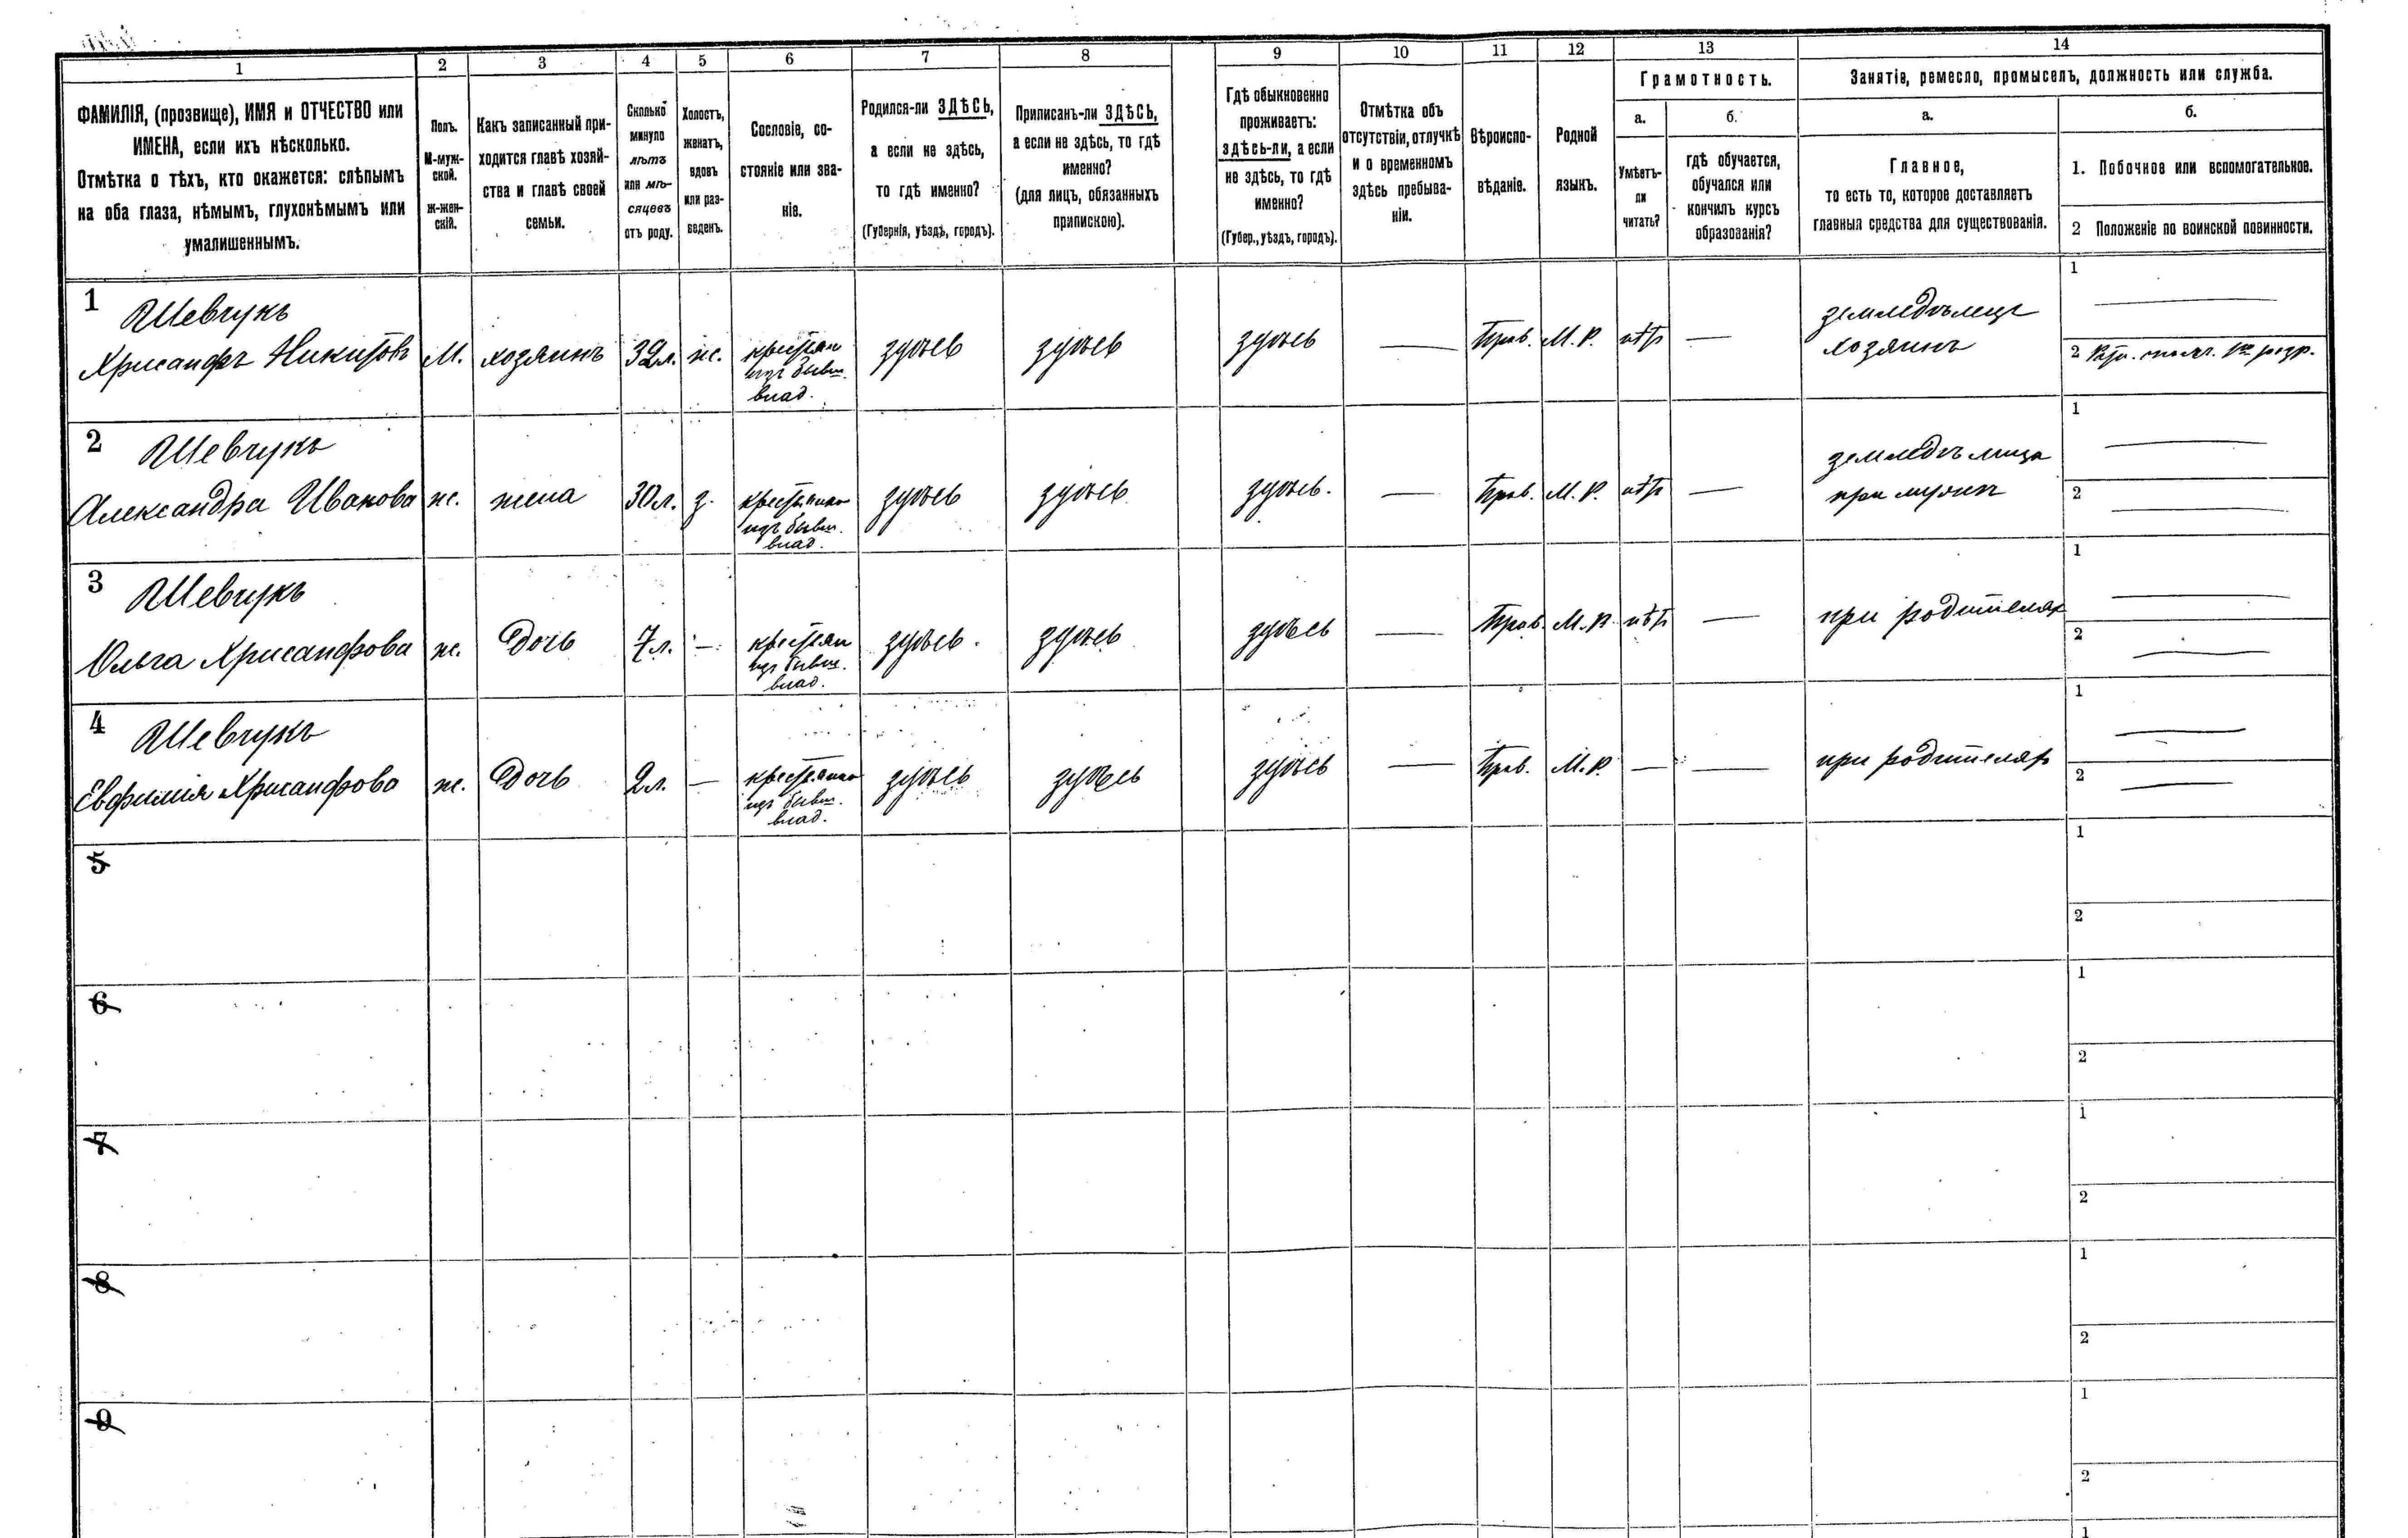 1
2
3
4
5
6
7
8
9
10
11
12
13
14
ФАМИЛІЯ, (прозвище), ИМЯ и ОТЧЕСТВО или
ИМЕНА, если ихъ нѣсколько.
Отмѣтка о тѣхъ, кто окажется: слѣпымъ
на оба глаза, нѣмымъ, глухонѣмымъ или
умалишеннымъ.
Полъ.
М-муж-
ской.
ж-жен-
скій.
Какъ записанный при-
ходится главѣ хозяй-
ства и главѣ своей
семьи.
Сколько
минуло
лѣтъ
или мѣ-
сяцевъ
отъ роду.
Холостъ,
женатъ,
вдовъ
или раз-
веденъ.
Сословіе, со-
стояніе или зва-
ніе.
Родился-ли ЗДѢСЬ,
а если не здѣсь,
то гдѣ именно?
(Губернія, уѣздъ, городъ).
Приписанъ-ли ЗДѢСЬ,
а если не здѣсь, то гдѣ
именно?
(для лицъ, обязанныхъ
припискою).
Гдѣ обыкновенно
проживаетъ:
здѣсь-ли, а если
не здѣсь, то гдѣ
именно?
(Губер., уѣздъ, городъ).
Отмѣтка объ
отсутствіи, отлучкѣ
и о временномъ
здѣсь пребыва-
ніи.
Вѣроиспо-
вѣданіе.
Родной
языкъ.
Грамотность.
а.
Умѣетъ-
ли
читать?
б.
гдѣ обучается,
обучался или
кончилъ курсъ
образованія?
Занятіе, ремесло, промыселъ, должность или служба.
а.
Главное,
то есть то, которое доставляетъ
главныя средства для существованія.
б.
1. Побочное или вспомогательное.
2 Положеніе по воинской повинности.
1
Шевчукъ
Хрисанфъ Никитовъ
М.
хозяинъ
32л.
ж.
крестьян
изъ бывш.
влад.
здѣсь
здѣсь
здѣсь
—
Прав.
М. Р.
нѣтъ
—
земледѣлецъ
хозяинъ
1
—
2
разр.
2
Шевчукъ
Александра Иванова
ж.
жена
30л.
з.
крестьянка
изъ бывш.
влад.
здѣсь
здѣсь
здѣсь.
—
Прав.
М. Р.
нѣтъ
—
земледѣлица
при мужѣ
1
—
2
—
3
Шевчукъ
Ольга Хрисанфова
ж.
Дочь
7л.
—
крестьян
изъ бывш.
влад.
здѣсь.
здѣсь
здѣсь
—
Прав.
М. Р.
нѣтъ
—
при родителях
1
—
2
—
4
Шевчукъ
Евфимія Хрисанфова
ж.
Дочь
2л.
—
крестьянка
изъ бывш.
влад.
здѣсь
здѣсь
здѣсь
—
Прав.
М. Р.
—
—
при родителях
1
—
2
—
5
1
2
6
1
2
7
1
2
8
1
2
9
1
2
1